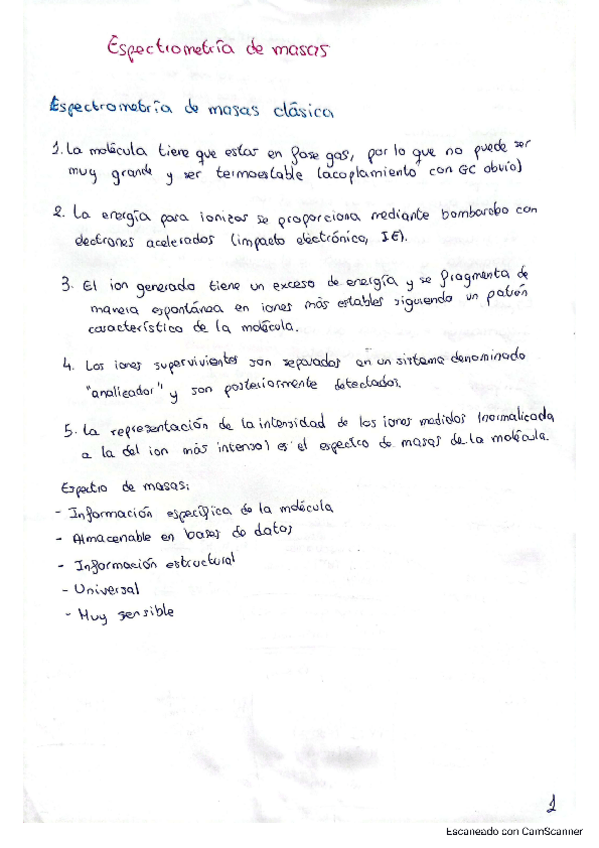 Espectrometría de masas
Espectrometría de masas clásica
1. La molécula tiene que estar en fase gas, por lo que no puede ser
muy grande y ser termoestable (acoplamiento con GC obvio)
2. La energía para ionizar se proporciona mediante bombardeo con
electrones acelerados (impacto electrónico, IE).
3. El ion generado tiene un exceso de energía y se fragmenta de
manera espontánea en iones más estables siguiendo un patrón
característico de la molécula.
4. Los iones supervivientes son separados en un sistema denominado
"analizador" y son posteriormente detectados.
5. La representación de la intensidad de los iones medidos (normalizada
a la del ion más intenso) es el espectro de masas de la molécula.
Espectro de masas:
- Información específica de la molécula
- Almacenable en bases de datos
- Información estructural
- Universal
- Muy sensible
1
Escaneado con CamScanner